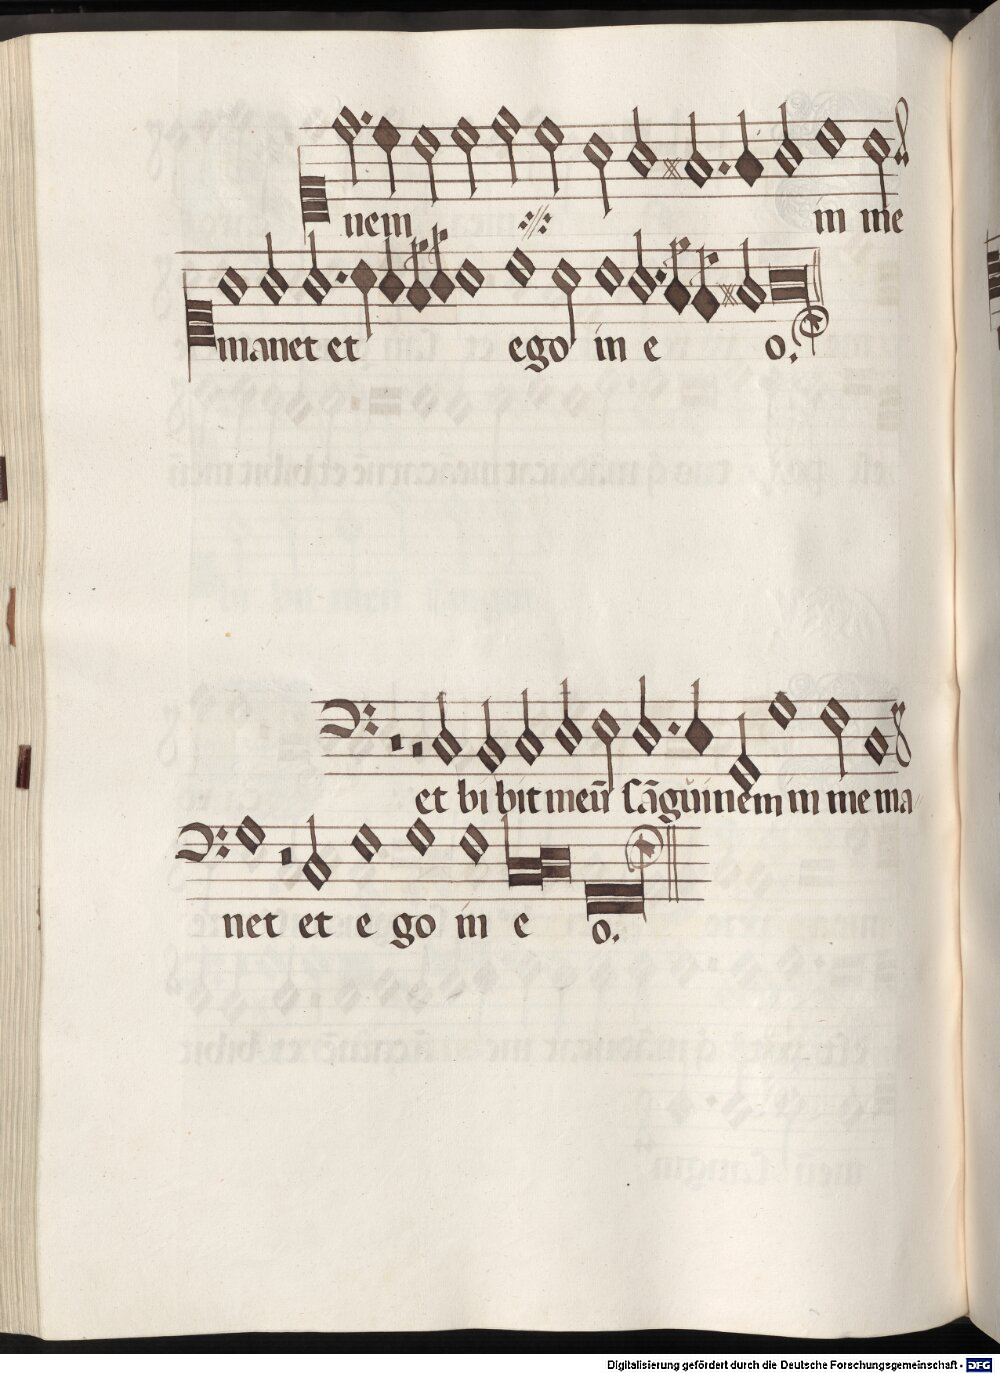 nem in me
manet et ego in e o.
et bibit meū sāguinem in me ma
net et ego in e o.
Digitalisierung gefördert durch die Deutsche Forschungsgemeinschaft - DFG